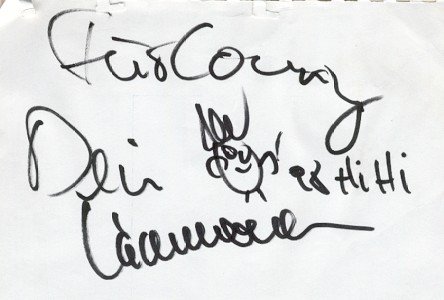 Für Conny
Dein 98 Hi Hi